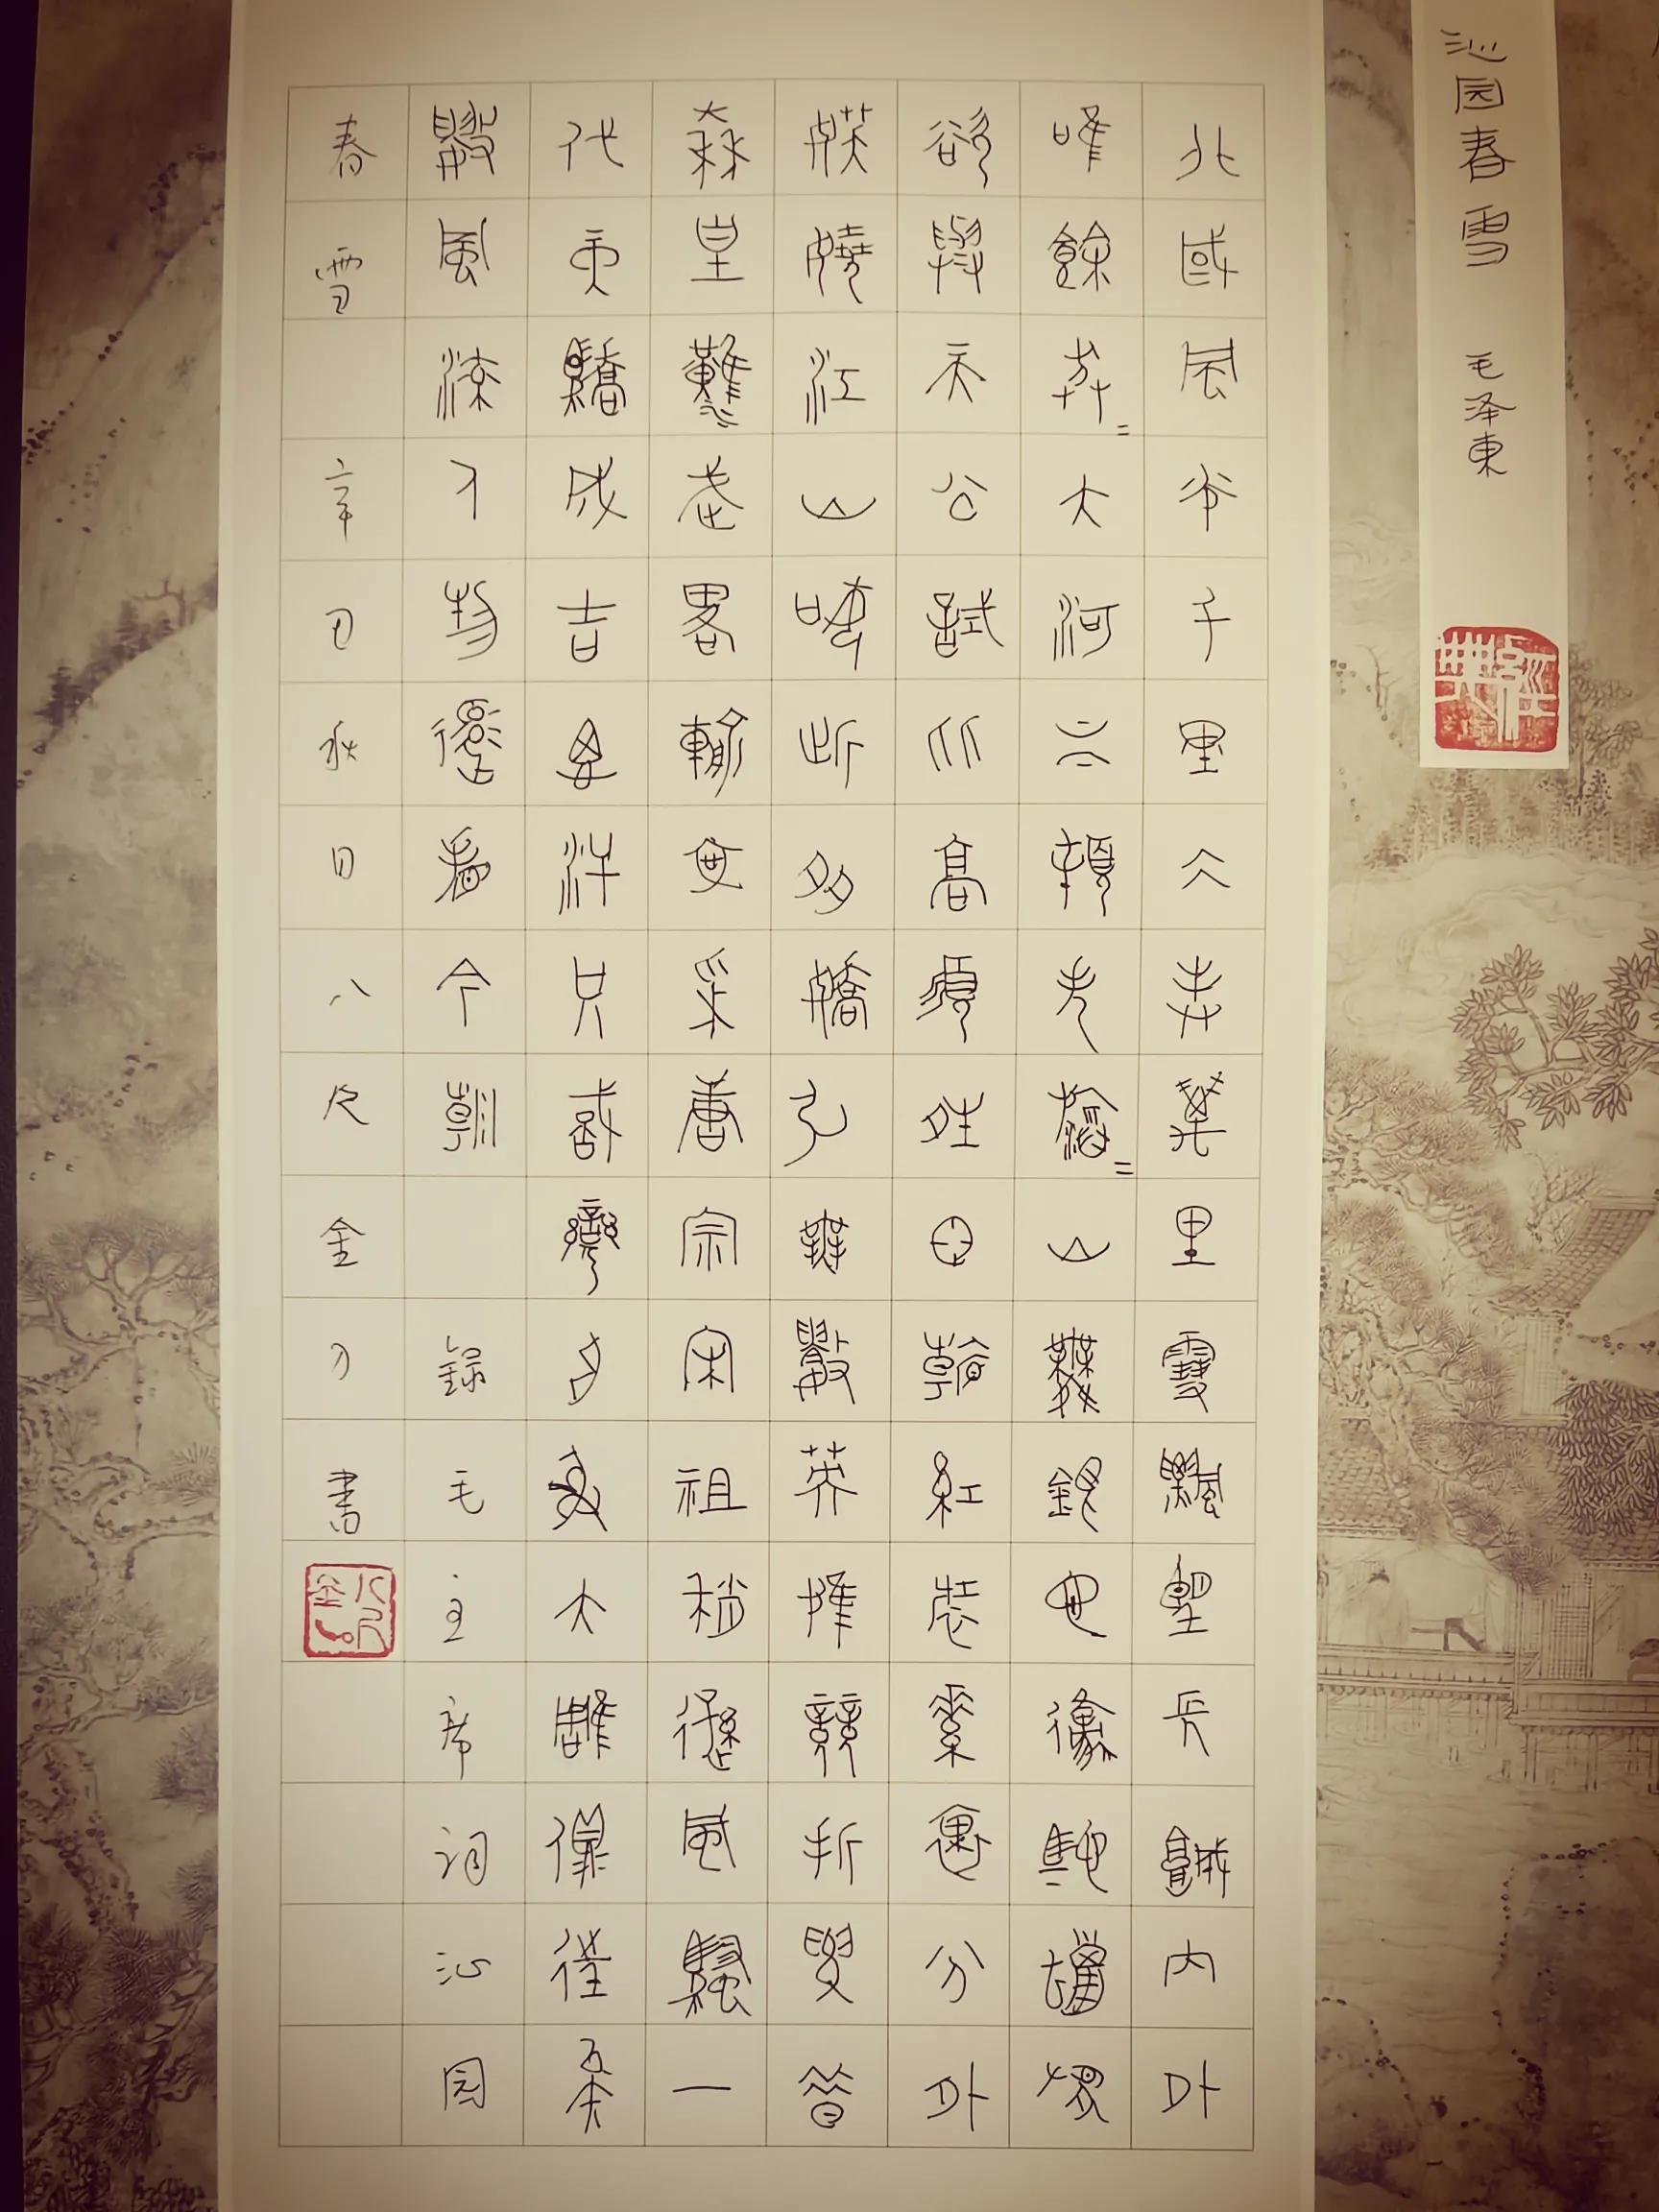 沁园春雪 毛泽東
北國風光千里冰封萬里雪飄望長城內外
唯餘莽=大河上下頓失滔=山舞銀蛇原馳蠟象
欲與天公試比高須晴日看紅裝素裹分外
妖嬈江山如此多嬌引無數英雄競折腰惜
秦皇漢武略輸文采唐宗宋祖稍遜風騷一
代天驕成吉思汗只識彎弓射大雕俱往矣
數風流人物還看今朝 錄毛主席詞沁园
春雪 辛丑秋日八尺金刀書